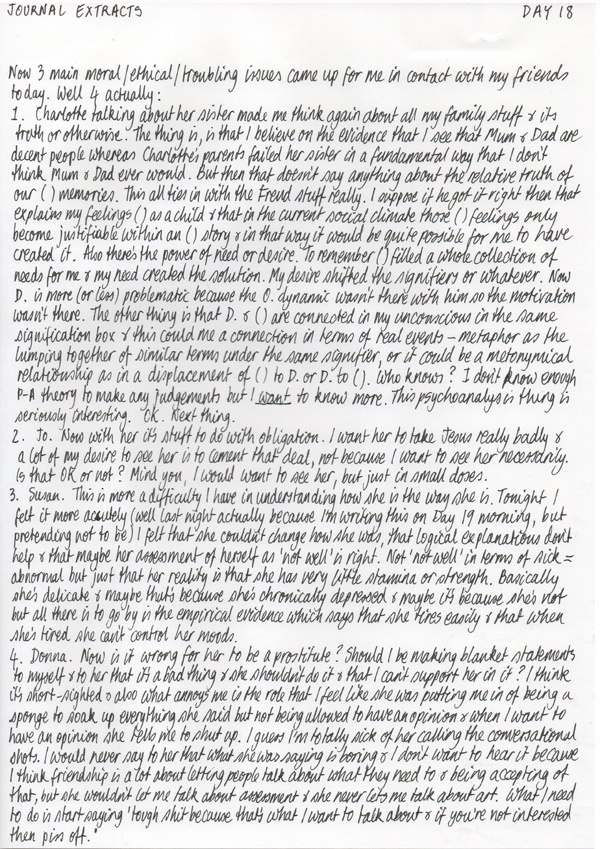 JOURNAL EXTRACTS DAY 18
Now 3 main moral/ethical/troubling issues came up for me in contact with my friends
today. Well 4 actually:
1. Charlotte talking about her sister made me think again about all my family stuff & its
truth or otherwise. The thing is, is that I believe on the evidence that I see that Mum & Dad are
decent people whereas Charlotte's parents failed her sister in a fundamental way that I don't
think Mum & Dad ever would. But then that doesn't say anything about the relative truth of
our ( ) memories. This all ties in with the Freud stuff really. I suppose if he got it right then that
explains my feelings ( ) as a child & that in the current social climate those ( ) feelings only
become justifiable within an ( ) story & in that way it would be quite possible for me to have
created it. Also there's the power of need or desire. To remember ( ) filled a whole collection of
needs for me & my need created the solution. My desire shifted the signifiers or whatever. Now
D. is more (or less) problematic because the O. dynamic wasn't there with him so the motivation
wasn't there. The other thing is that D. & ( ) are connected in my unconscious in the same
signification box & this could me a connection in terms of real events – metaphor as the
lumping together of similar terms under the same signifier, or it could be a metonymical
relationship as in a displacement of ( ) to D. or D. to ( ). Who knows? I don't know enough
P-A theory to make any judgements but I want to know more. This psychoanalysis thing is
seriously interesting. OK. Next thing.
2. Jo. Now with her it's stuff to do with obligation. I want her to take Jesus really badly &
a lot of my desire to see her is to cement that deal, not because I want to see her necessarily.
Is that OK or not? Mind you, I would want to see her, but just in small doses.
3. Susan. This is more a difficulty I have in understanding how she is the way she is. Tonight I
felt it more acutely (well last night actually because I'm writing this on Day 19 morning, but
pretending not to be) I felt that she couldn't change how she was, that logical explanations don't
help & that maybe her assessment of herself as 'not well' is right. Not 'not well' in terms of sick =
abnormal but just that her reality is that she has very little stamina or strength. Basically
she's delicate & maybe that's because she's chronically depressed & maybe it's because she's not
but all there is to go by is the empirical evidence which says that she tires easily & that when
she's tired she can't control her moods.
4. Donna. Now is it wrong for her to be a prostitute? Should I be making blanket statements
to myself & to her that it's a bad thing & she shouldn't do it & that I can't support her in it? I think
it's short-sighted & also what annoys me is the role that I feel like she was putting me in of being a
sponge to soak up everything she said but not being allowed to have an opinion & when I want to
have an opinion she tells me to shut up. I guess I'm totally sick of her calling the conversational
shots. I would never say to her that what she was saying is boring & I don't want to hear it because
I think friendship is a lot about letting people talk about what they need to & being accepting of
that, but she wouldn't let me talk about assessment & she never lets me talk about art. What I need
to do is start saying 'tough shit because that's what I want to talk about & if you're not interested
then piss off.'